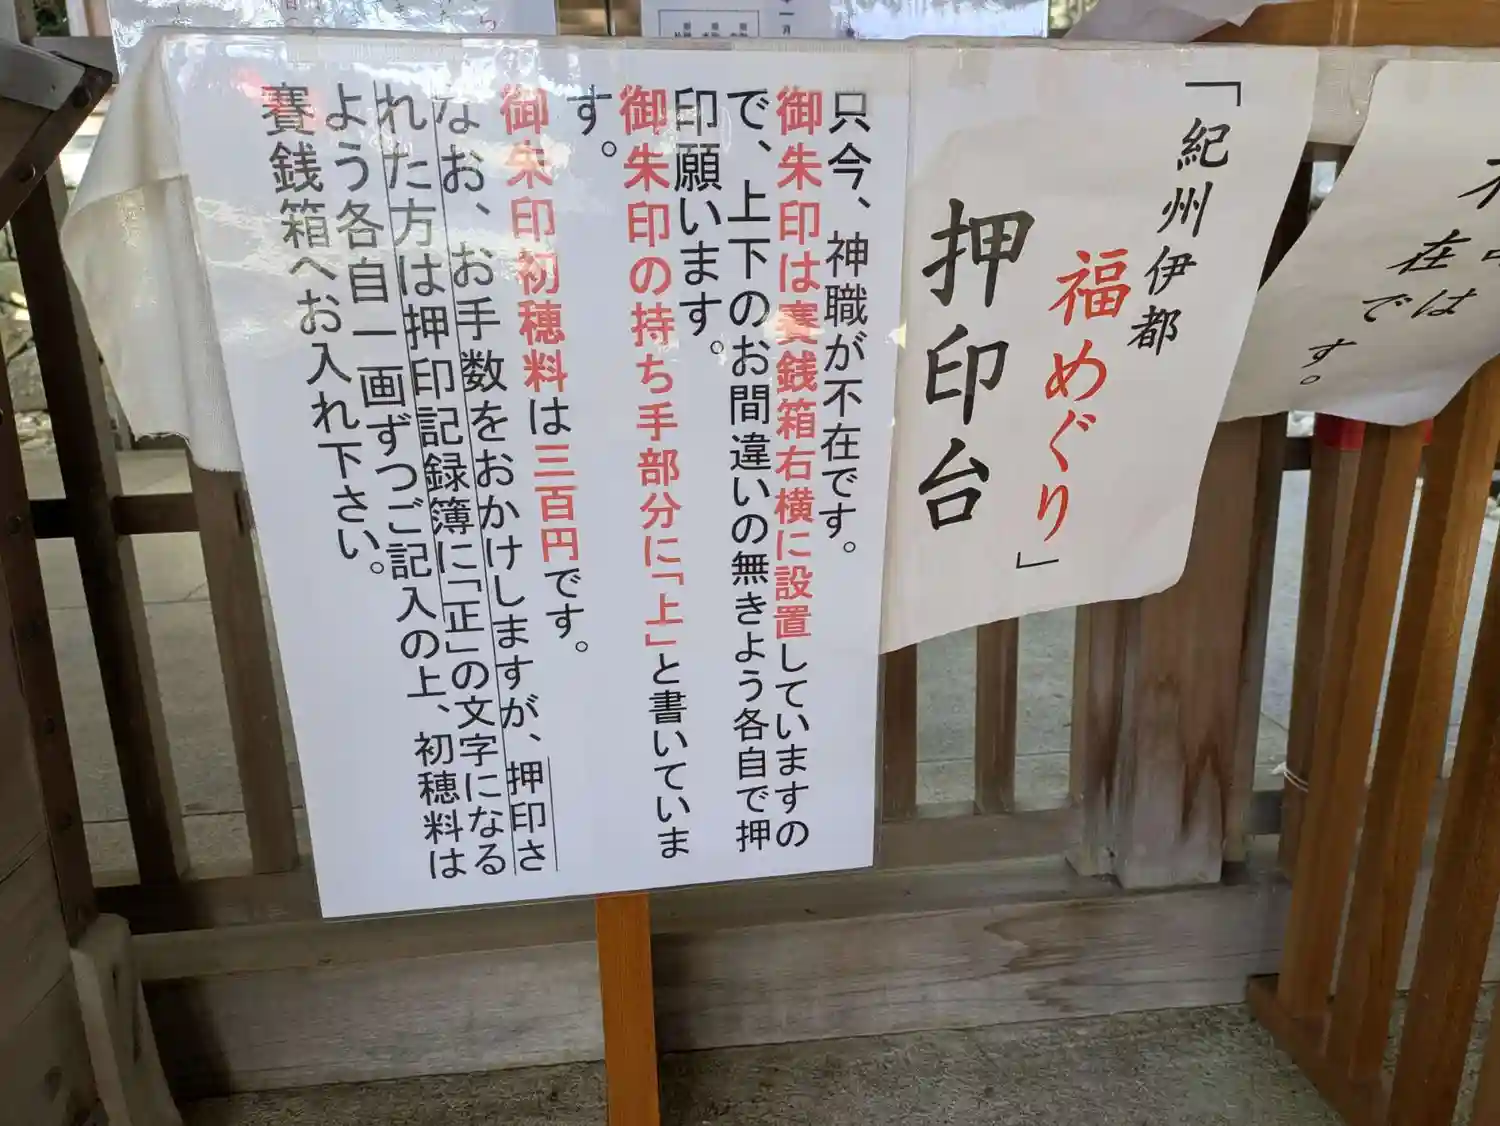 「紀州伊都
福めぐり」
押印台
只今、神職が不在です。
御朱印は賽銭箱右横に設置していますの
で、上下のお間違いの無きよう各自で押
印願います。
御朱印の持ち手部分に「上」と書いていま
す。
御朱印初穂料は三百円です。
なお、お手数をおかけしますが、押印さ
れた方は押印記録簿に「正」の文字になる
よう各自一画ずつご記入の上、初穂料は
賽銭箱へお入れ下さい。
在では
です。